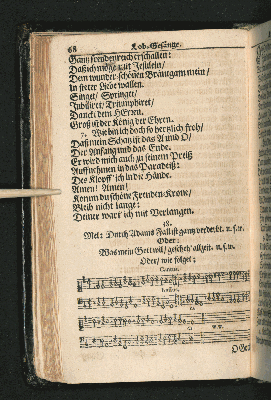 68 Lob-Gesänge.
Gantz freudenreich erschallen:
Daß ich möge mit Jesulein/
Dem wunder-schönen Bräutgam mein/
In steter Liebe wallen.
Singet/ Springet/
Jubiliret/ Triumphiret/
Dancket dem HErren.
Groß ist der König der Ehren.
7. Wie bin ich doch so hertzlich froh/
Daß mein Schatz ist das A und O/
Der Anfang und das Ende.
Er wird mich auch zu seinem Preiß
Auffnehmen in das Paradeiß:
Des klopff' ich in die Hände.
Amen! Amen!
Komm du schöne Freuden-Krone/
Bleib nicht lange:
Deiner wart' ich mit Verlangen.
48.
Mel: Durch Adams Fall ist gantz verderbt. u. s. w.
Oder:
Was mein Gott will/ gescheh' allzeit. u. s. w.
Oder/ wie folget:
Cantus.